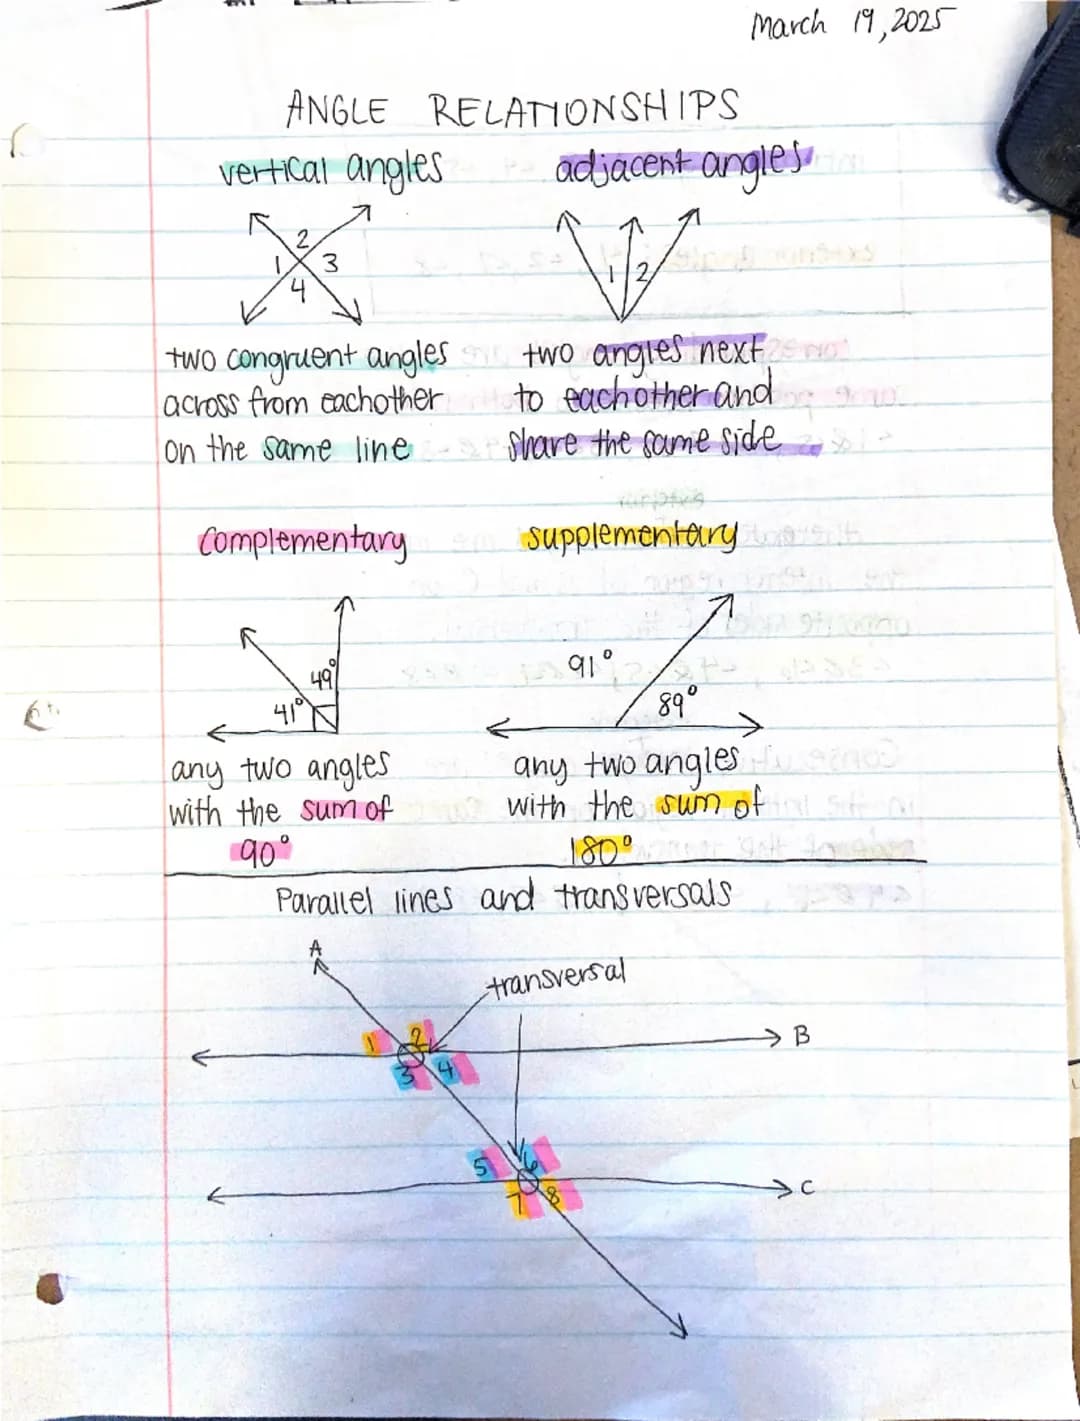 March 19, 2025
ANGLE RELATIONSHIPS
vertical angles
1 2 3 4
two congruent angles
across from eachother
on the same line
adjacent angles
1 2
two angles next
to eachother and
share the same side
complementary
49°
41°
any two angles
with the sum of
90°
supplementary
91°
89°
any two angles
with the sum of
180°
Parallel lines and transversals
A
transversal
1 2
B
3 4
5 6
C
7 8